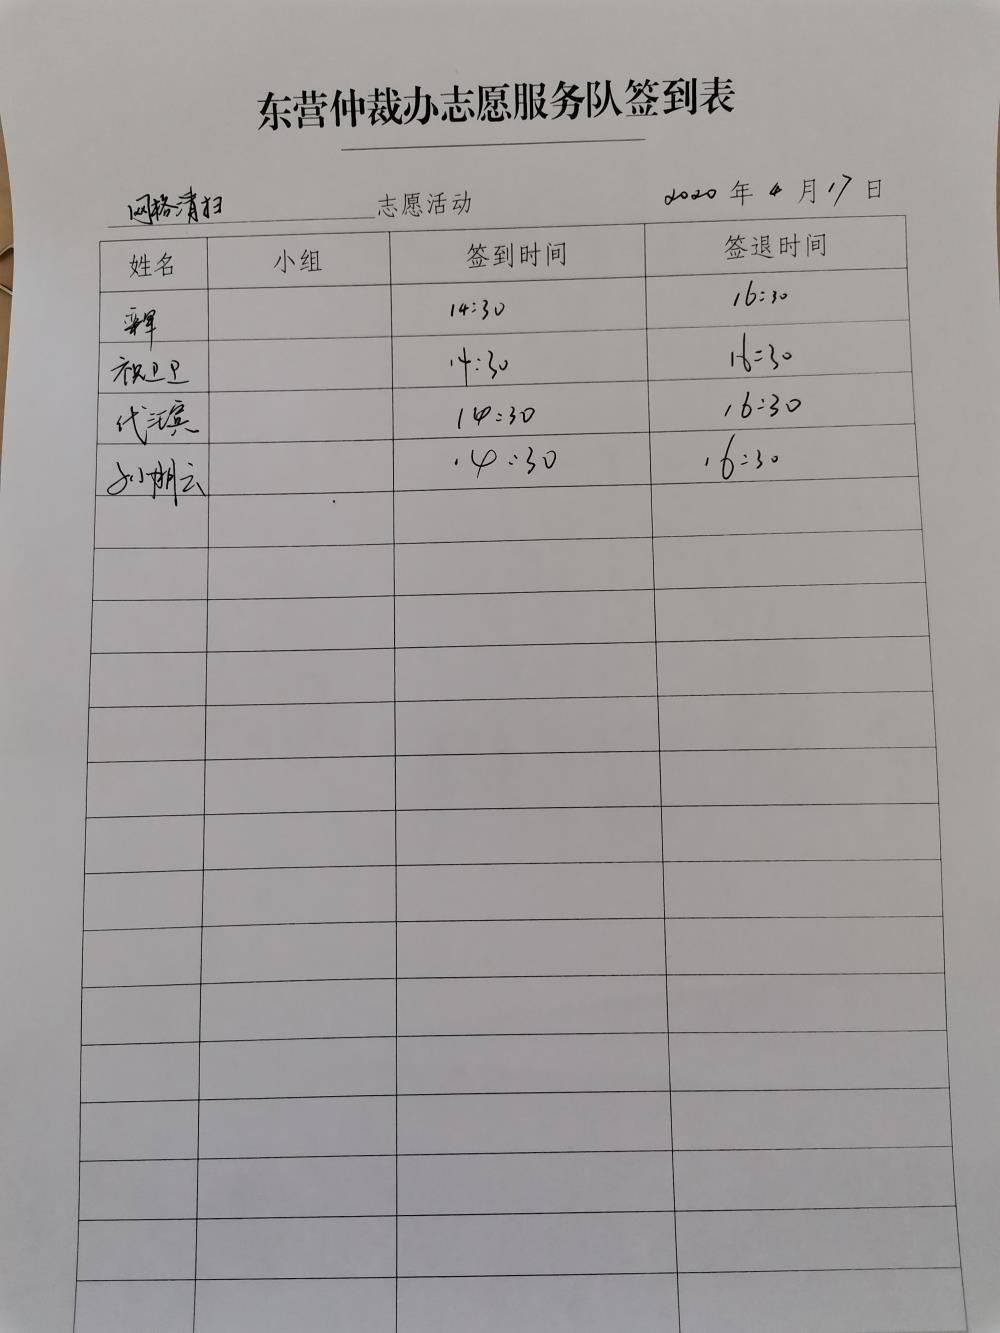 东营仲裁办志愿服务队签到表
网格清扫 志愿活动 2020 年 4 月 17 日
姓名 小组 签到时间 签退时间
14:30 16:30
祝卫卫 14:30 16:30
代江宾 14:30 16:30
孙娟云 14:30 16:30